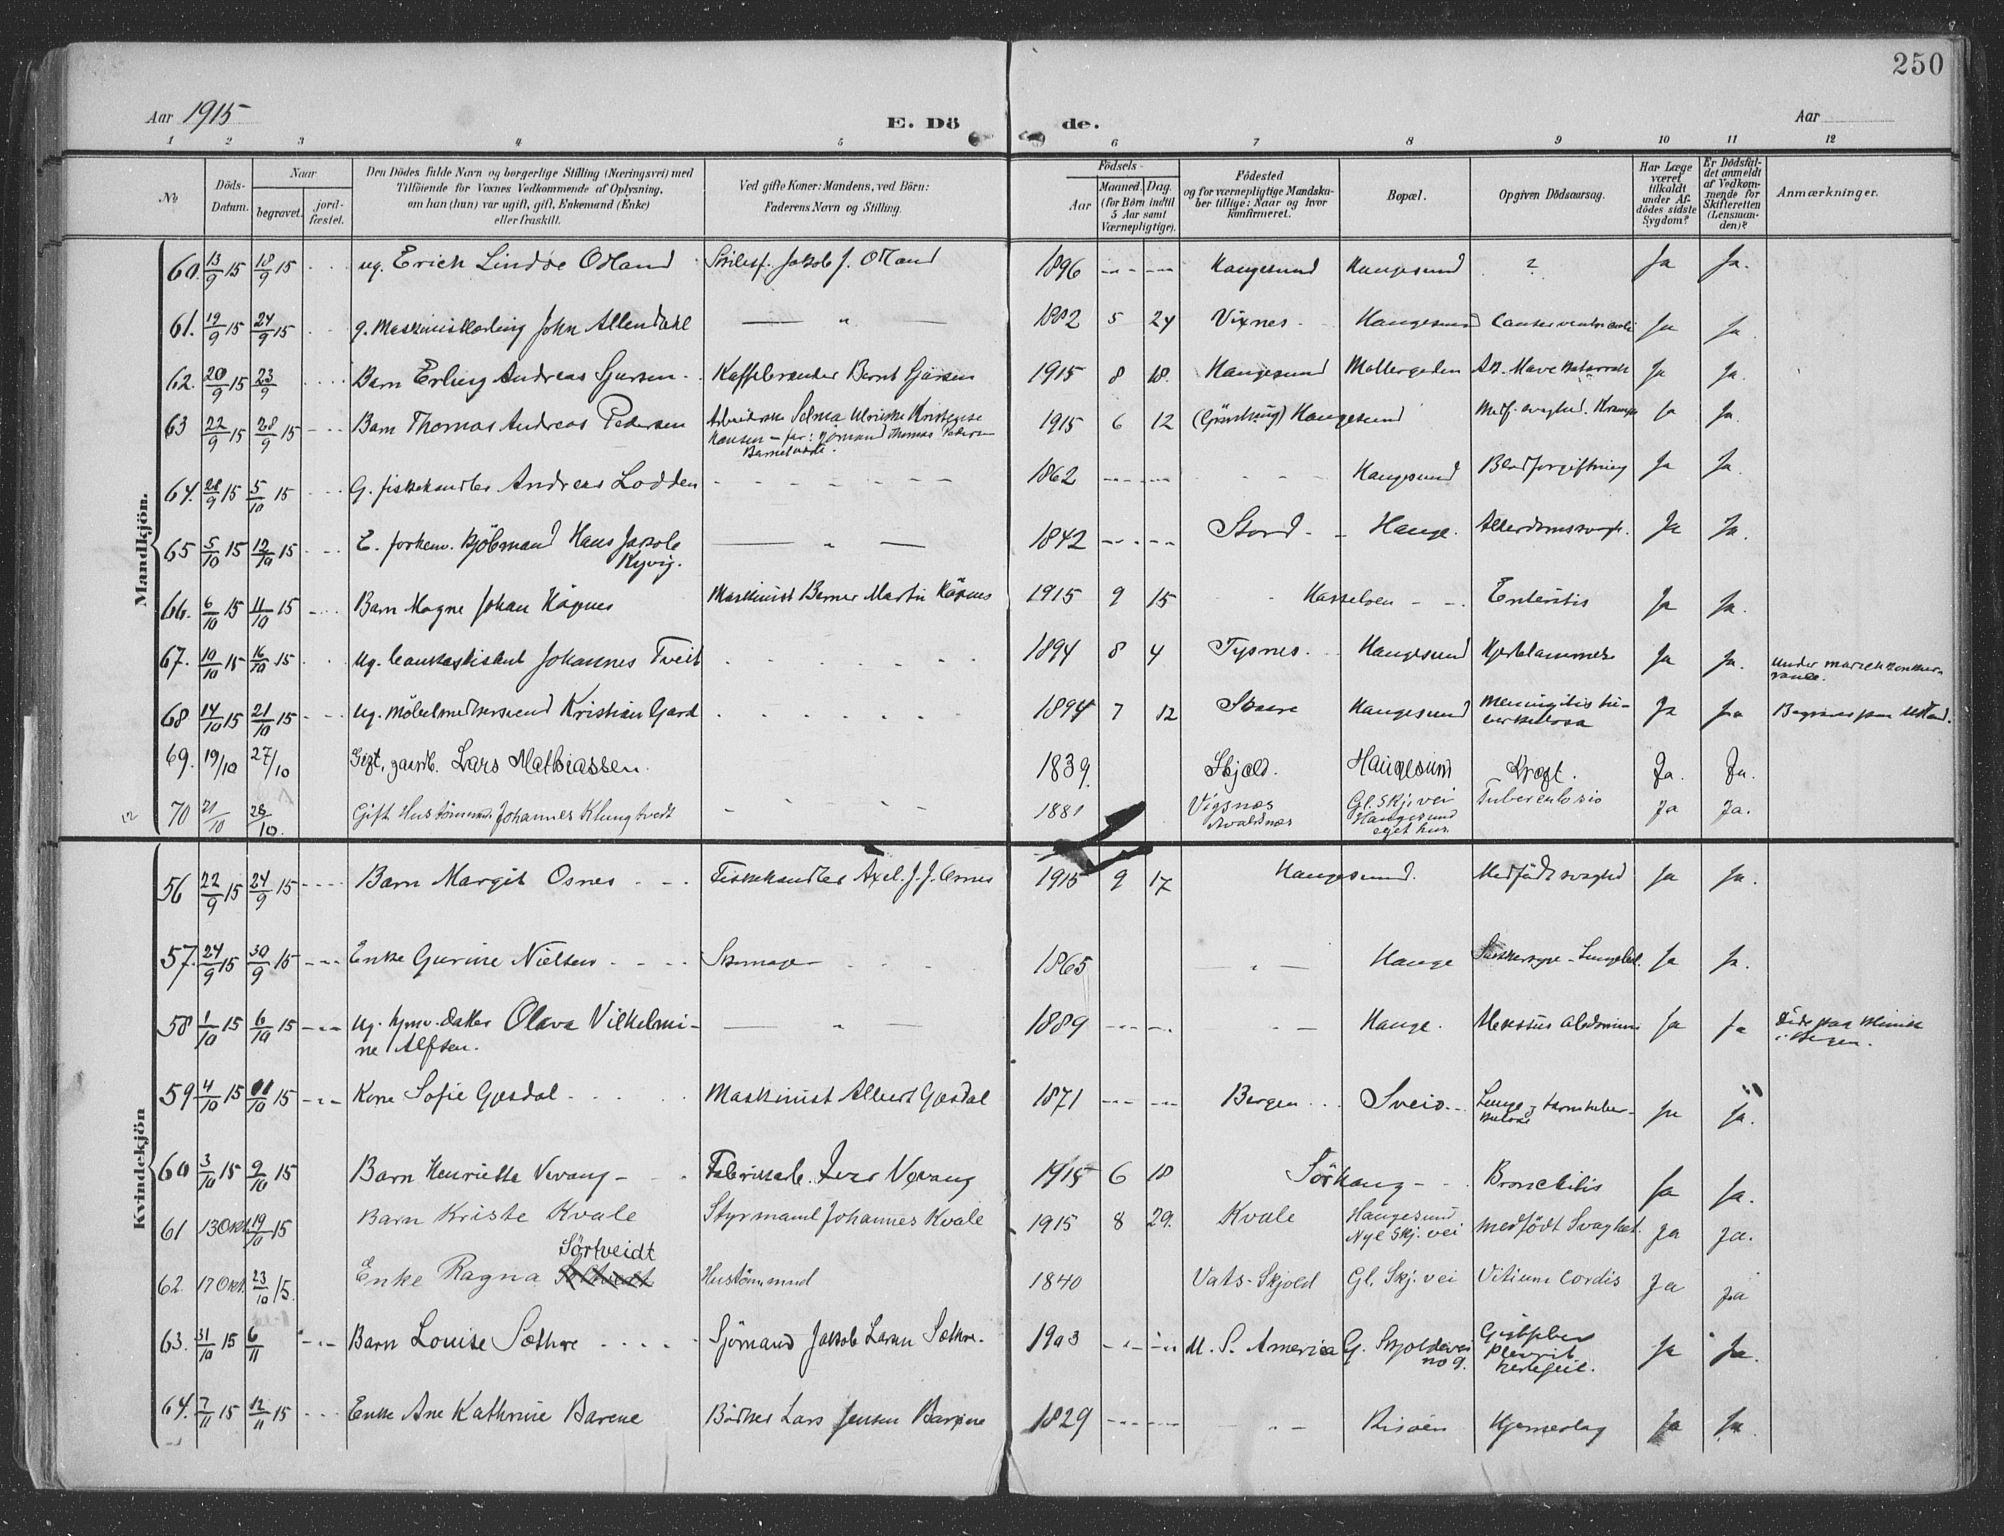 250
Aar 1915
E. Dö de.
Aar
1 2 3 4 5 6 7 8 9 10 11 12
No
Döds-Datum.
Naar
begravet.
jord-fæstet.
Den Dödes fulde Navn og borgerlige Stilling (Næringsvei) med
Tilföiende for Voxnes Vedkommende af Oplysning,
om han (hun) var ugift, gift, Enkemand (Enke)
eller fraskilt.
Ved gifte Koner: Mandens, ved Börn:
Faderens Navn og Stilling.
Födsels-
Aar
Maaned. Dag.
(for Börn indtil
5 Aar samt
Værnepligtige).
Födested
og for værnepligtige Mandska-
ber tillige: Naar og hvor
konfirmeret.
Bopæl.
Opgiven Dödsaarsag.
Har Læge
været
tilkaldt
under Af-
dödes sidste
Sygdom?
Er Dödsfal-
det anmeldt
af Vedkom-
mende for
Skifteretten
(Lensman-
den)?
Anmærkninger.
Mandkjön.
60. 13/9 15 18/9 15 ug. Erich Lindøe Odland Jakob J. Odland 1896 Haugesund Haugesund ? Ja Ja.
61. 19/9 15 24/9 15 g. John Allendahl " 1882 5 24 Vixnes Haugesund Cancer ventriculi Ja Ja
62. 20/9 15 23/9 Barn Erling Andreas Gjersen Kaffebrænder Bernt Gjersen 1915 8 18. Haugesund Møllergaden Ak. Mave Ja Ja.
63 22/9 15 28/9 15 Barn Thomas Andreas Pedersen Arbeiderske Selma Ulrikke Kristense
Hansen - far: Sjømand Thomas Peders
1915 6 12 Haugesund Medf. svaghed. Krampe Ja Ja.
64. 28/9 15 5/10 15 G. fiskehandler Andreas Lodden 1862 Haugesund Blodforgiftning Ja Ja.
65 5/10 15 12/10 15 E. forhenv. Kjöbmand Hans Jakob
Kyvig.
" 1842 Stord Hauge. Alderdomssvagh. Ja Ja.
66. 6/10 15 11/10 15 Barn Magne Johan Høynes Maskinist Berner Martin Høynes 1915 9 15 Hasseløen Enteritis Ja Ja.
67. 10/10 15 16/10 15 ug. Johannes Tveit 1894 8 4 Tysnes Haugesund Hjertelammelse Ja Ja. Under
68 14/10 15 21/10 15 ug. Møbelsnedkersvend Kristian Gard 1894 7 12 Skaare Haugesund Meningitis tu-
berkulosa
Ja Ja Begraves paa Utland.
69. 19/10 27/10 Gift, gaardb. Lars Mathiassen. 1839. Skjold. Haugesund Kræft. Ja. Ja.
12 70 21/10 28/10. Gift Hustømmerm. Johannes Klungtvedt 1881 Vigsnæs
Avaldsnæs
Gl. Skj. vei
Haugesund
eget hus.
Tuberculosis Ja Ja.
Kvindekjön
56 22/9 15 24/9 15 Barn Margit Osnes Fiskehandler Axel J. J. Osnes 1915 9 17 Haugesund. Medfødt svaghed Ja Ja.
57. 24/9 15 30/9 15 Enke Gurine Nielsen Skomager 1865 " Hauge Ja Ja.
58 1/10 15 6/10 15 ug. Datter Olava Vilhelmi-
ne Alfsen.
" 1889 Hauge. Abdomin Ja Ja Døde paa Klinik
i Bergen.
59 4/10 15 11/10 15 Kone Sofie Gjesdal Maskinist Albert Gjesdal 1871 Bergen Sveio Lunge og tarmtuber-
kulose
Ja Ja.
60 3/10 15 9/10 15 Barn Henriette Vevang Fabrikarb. Iver Vevang 1915 6 18 Sörhaug Bronchitis Ja Ja.
61 13 Okt. 19/10 15 Barn Kriste Kvale Styrmand Johannes Kvale 1915 8 29. Kvale Haugesund
Nye Skj. vei
medfødt Svaghet. Ja Ja.
Sörtveidt
62. 17 Okt. 23/10 15. Enke Ragna Hustømmermd 1840 Vats-Skjold Gl. Skj. vei Vitium Cordis Ja Ja
63. 31/10 15 6/11 Barn Louise Sæthre Sjömand Jakob Larsen Sæthre. 1903 U. S. America G. Skjoldevei
no 9.
Gigtfeber
Pleurit
Hertefeil.
Ja Ja.
64. 7/11 15 12/11 15 Enke Ane Kathrine Barene Bödker Lars Jensen Barene 1829 Risøen Hjerneslag Ja Ja.